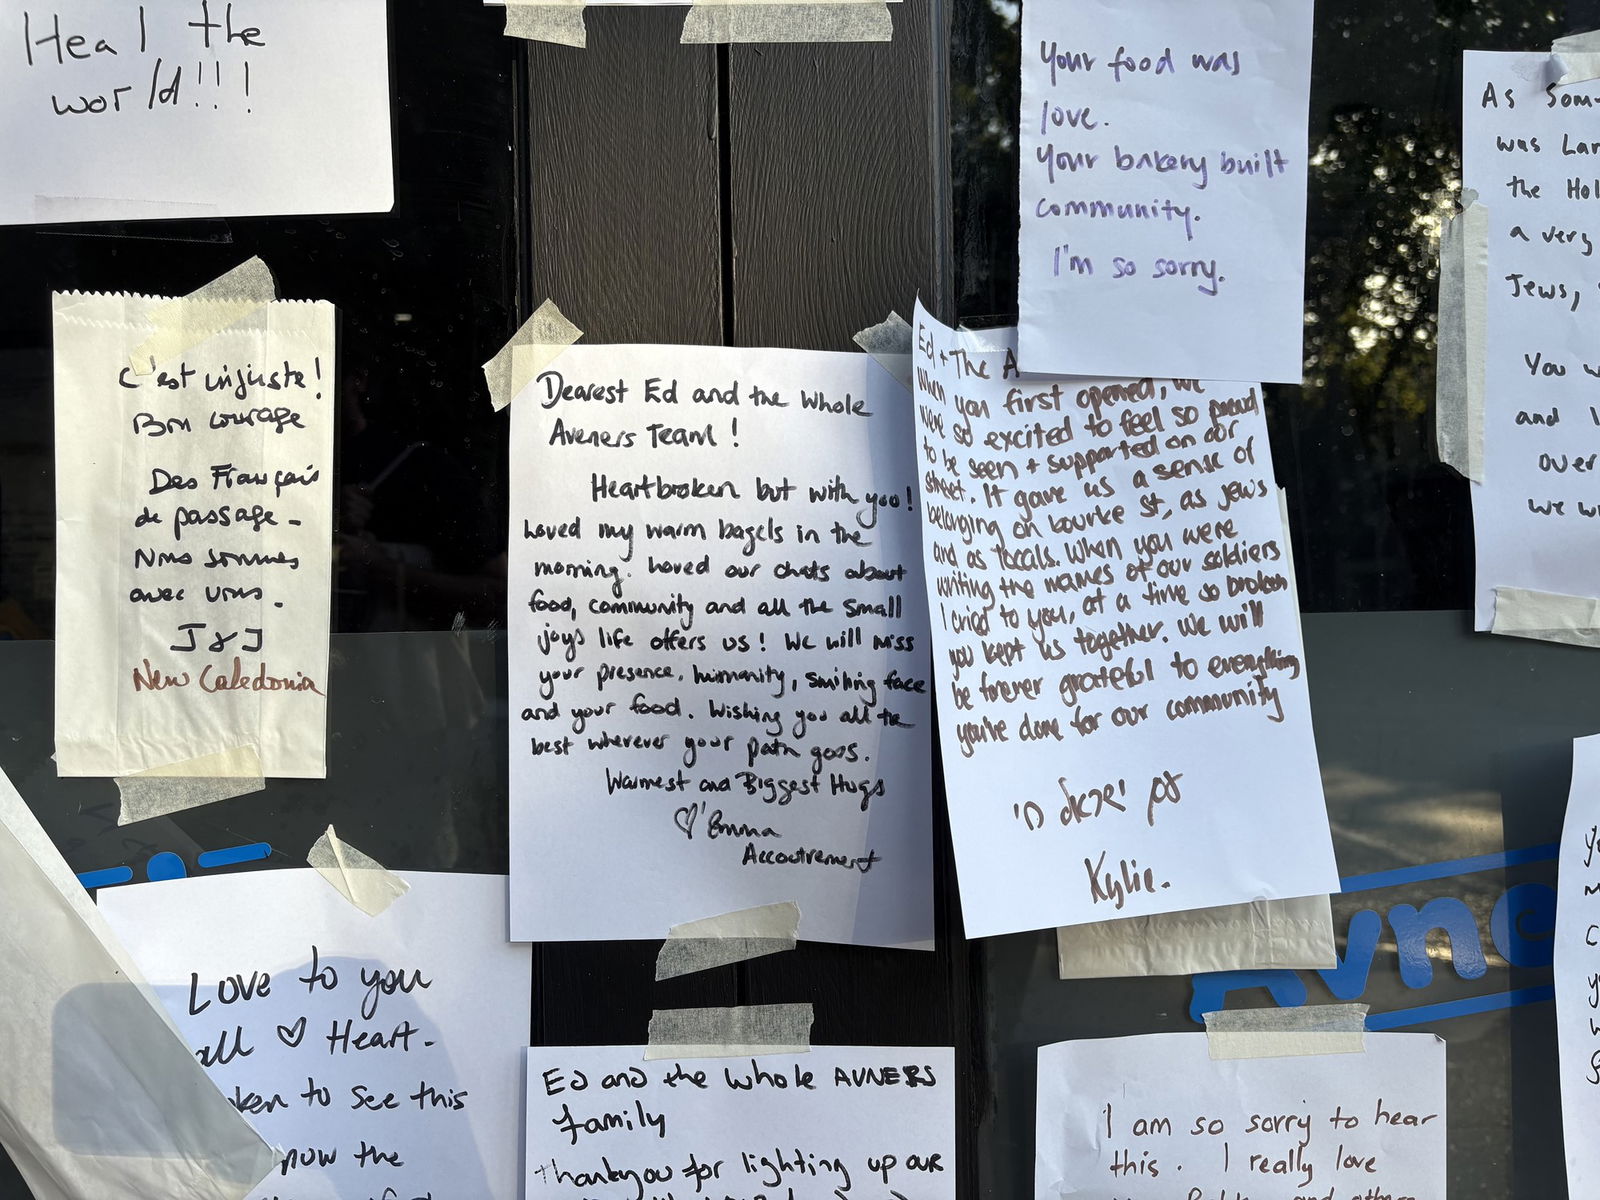 Heal the
world!!!
Your food was
love.
Your bakery built
community.
I'm so sorry.
As Som
was Lar
the Hol
a very
Jews,
You w
and I
over
we w
C'est injuste!
Bon courage
Des Français
de passage -
Nous sommes
avec vous.
J & J
New Caledonia
Dearest Ed and the Whole
Avners Team!
Heartbroken but with you!
Loved my warm bagels in the
morning. Loved our chats about
food, community and all the small
joys life offers us! We will miss
your presence, humanity, smiling face
and your food. Wishing you all the
best wherever your path goes.
Warmest and Biggest Hugs
♡ Emma
Accoutrement
Ed + The A
When you first opened, we
were so excited to feel so proud
to be seen + supported on our
street. It gave us a sense of
belonging on bourke st, as jews
and as locals. When you were
writing the names of our soldiers
I cried to you, at a time so broken
you kept us together. We will
be forever grateful to everything
you've done for our community
עם ישראל חי
Kylie.
Avne
Love to you
all ♡ Heart-
ken to see this
now the
Ed and the whole AVNERS
family
Thankyou for lighting up our
I am so sorry to hear
this. I really love